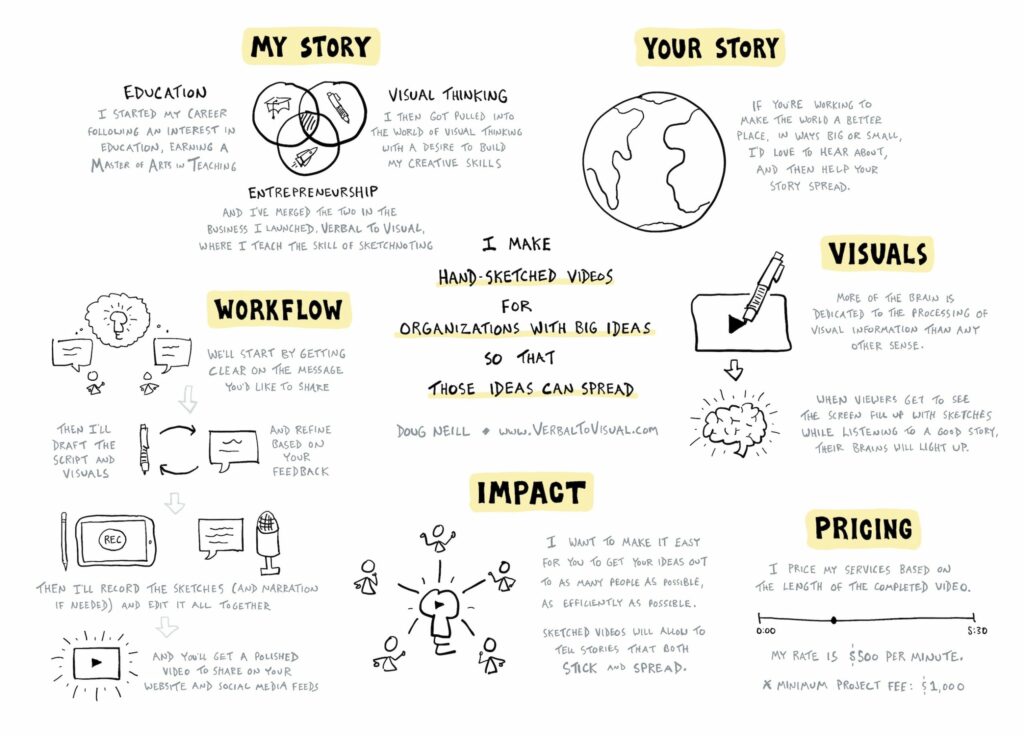 MY STORY
EDUCATION
I STARTED MY CAREER
FOLLOWING AN INTEREST IN
EDUCATION, EARNING A
MASTER OF ARTS IN TEACHING
VISUAL THINKING
I THEN GOT PULLED INTO
THE WORLD OF VISUAL THINKING
WITH A DESIRE TO BUILD
MY CREATIVE SKILLS
ENTREPRENEURSHIP
AND I'VE MERGED THE TWO IN THE
BUSINESS I LAUNCHED, VERBAL TO VISUAL,
WHERE I TEACH THE SKILL OF SKETCHNOTING
YOUR STORY
IF YOU'RE WORKING TO
MAKE THE WORLD A BETTER
PLACE, IN WAYS BIG OR SMALL,
I'D LOVE TO HEAR ABOUT,
AND THEN HELP YOUR
STORY SPREAD.
I MAKE
HAND-SKETCHED VIDEOS
FOR
ORGANIZATIONS WITH BIG IDEAS
SO THAT
THOSE IDEAS CAN SPREAD
DOUG NEILL • WWW.VERBALTOVISUAL.COM
WORKFLOW
WE'LL START BY GETTING
CLEAR ON THE MESSAGE
YOU'D LIKE TO SHARE
THEN I'LL
DRAFT THE
SCRIPT AND
VISUALS
AND REFINE
BASED ON
YOUR
FEEDBACK
REC
THEN I'LL RECORD THE SKETCHES (AND NARRATION
IF NEEDED) AND EDIT IT ALL TOGETHER
AND YOU'LL GET A POLISHED
VIDEO TO SHARE ON YOUR
WEBSITE AND SOCIAL MEDIA FEEDS
VISUALS
MORE OF THE BRAIN IS
DEDICATED TO THE PROCESSING OF
VISUAL INFORMATION THAN ANY
OTHER SENSE.
WHEN VIEWERS GET TO SEE
THE SCREEN FILL UP WITH SKETCHES
WHILE LISTENING TO A GOOD STORY,
THEIR BRAINS WILL LIGHT UP.
IMPACT
I WANT TO MAKE IT EASY
FOR YOU TO GET YOUR IDEAS OUT
TO AS MANY PEOPLE AS POSSIBLE,
AS EFFICIENTLY AS POSSIBLE.
SKETCHED VIDEOS WILL ALLOW TO
TELL STORIES THAT BOTH
STICK AND SPREAD.
PRICING
I PRICE MY SERVICES BASED ON
THE LENGTH OF THE COMPLETED VIDEO.
0:00 5:30
MY RATE IS $500 PER MINUTE.
* MINIMUM PROJECT FEE: $1,000